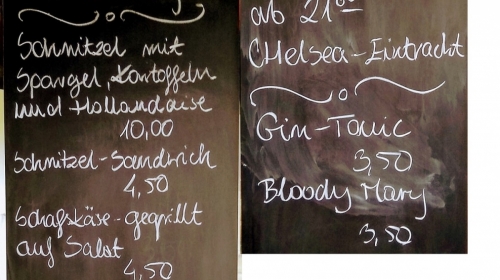 Schnitzel mit
Spargel, Kartoffeln
und Hollandaise
10,00
Schnitzel-Sandwich
4,50
Schafskäse-gegrillt
auf Salat
4,50
ab 21⁰⁰
CHelsea-Eintracht
Gin-Tonic
3,50
Bloody Mary
3,50